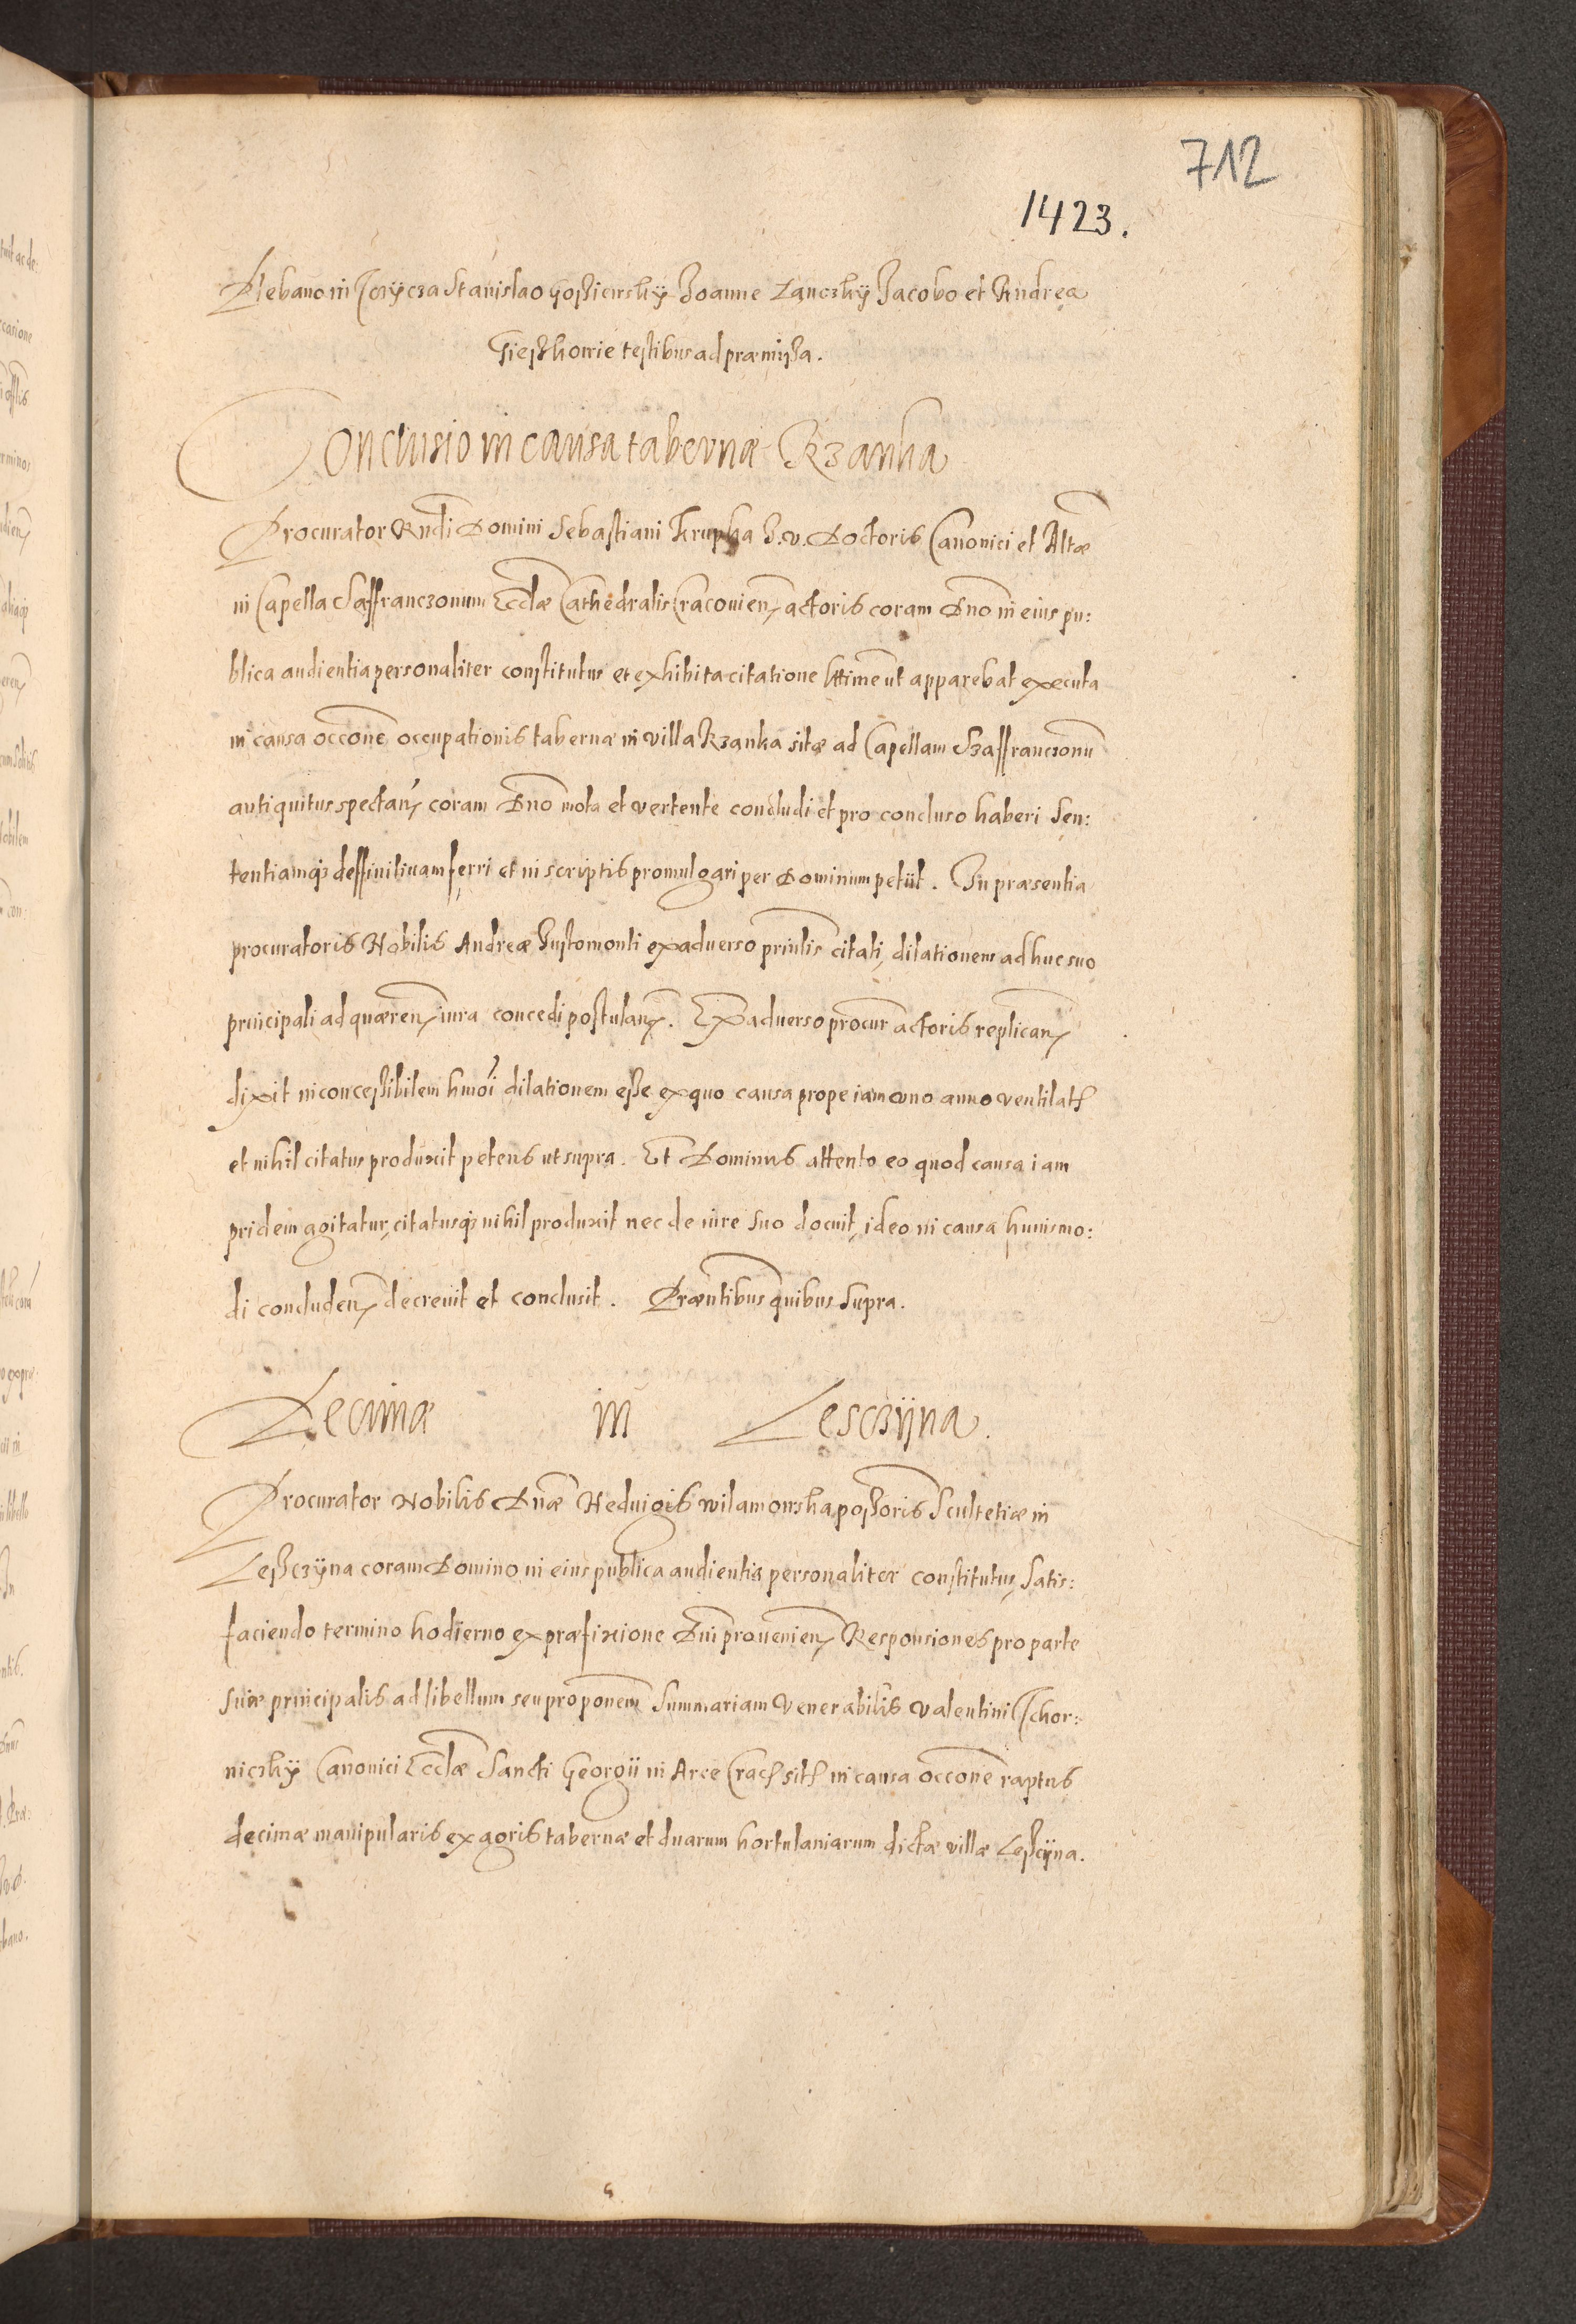 712
1423.
Plebano in Sczÿcza Stanislao Goßiewskÿ Joanne Lanczkÿ Jacobo et Andrea
testibus ad præmißa.
Conclusio in causa tabernæ Rzanka
Procurator Rndi Domini Sebastiani Krupka J. V. Doctoris Canonici et Altæ
in Capella Saffranczonum Eccliæ Cathedralis Cracovien, actoris coram Dno in eius pu:
blica audientia personaliter constitutus et exhibita citatione lttime ut apparebat executa
in causa occone occupationis tabernæ in villa Rzanka sitæ ad Capellam Szaffranczonu
antiquitus spectan, coram Dno mota et vertente concludi et pro concluso haberi Sen:
tentiamq3 deffinitivam ferri et in scriptis promulgari per Dominum petiit. In præsentia
procuratoris Nobilis Andreæ Justomonti ex adverso prinlis citati, dilationem adhuc suo
principali ad quæren, iura concedi postulan,. Ex adverso procur actoris replican,
dixit inconceßibilem hmoi dilationem eße ex quo causa prope iam uno anno ventilat
et nihil citatus produxit petens ut supra. Et Dominus attento eo quod causa iam
pridem agitatur, citatusq3 nihil produxit nec de iure suo docuit, ideo in causa huiusmo:
di concluden, decrevit et conclusit. Præntibus quibus supra.
Decimæ in Lesczÿna.
Procurator Nobilis Dnæ Hedvigis Wilamowska poßoris Scultetiæ in
Leßczÿna coram Domino in eius publica audientia personaliter constitutus, Satis:
faciendo termino hodierno ex præfixione Dni provenien, Responsiones pro parte
suæ principalis ad libellum seu proponem summariam Venerabilis Valentini Schor:
niczkÿ Canonici Eccliæ Sancti Georgii in Arce Crac sit in causa occone raptus
decimæ manipularis ex agris tabernæ et duarum hortulaniarum dictæ villæ Leßcÿna.